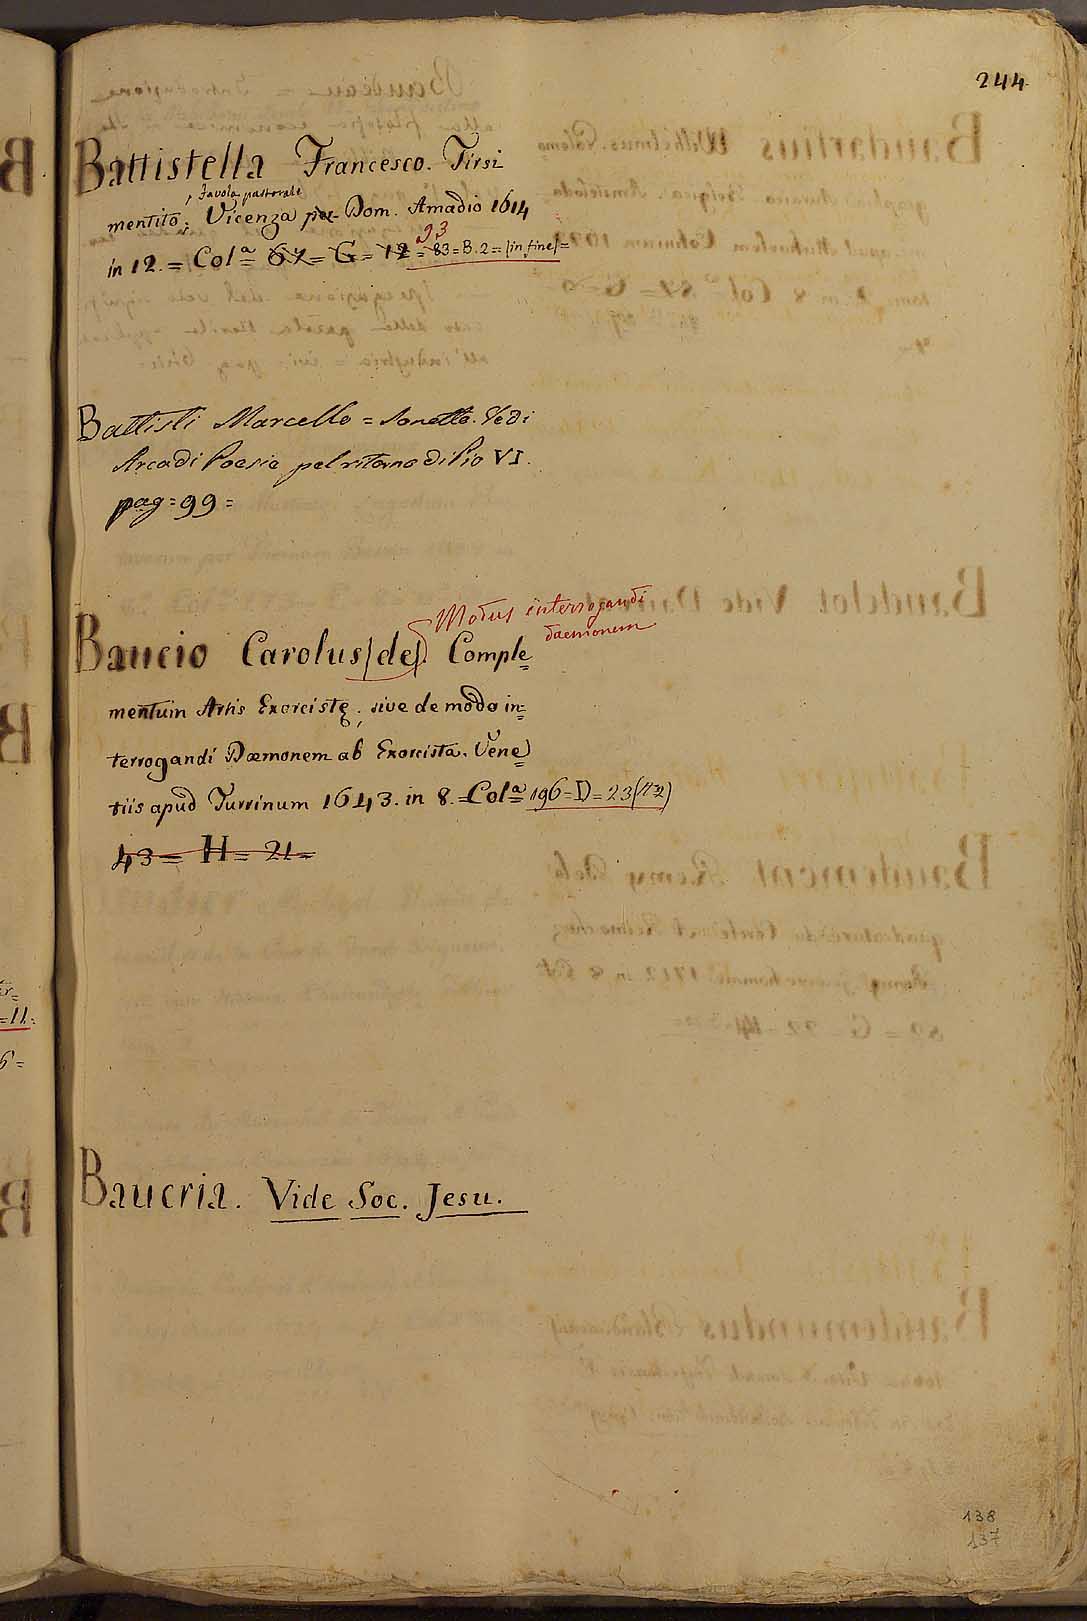 244
Battistella Francesco. Tirsi
, Favola pastorale
mentito; Vicenza per Dom. Amadio 1614
93
in 12. = Col.ª 67 = G = 12 = 83 = B. 2 = (in fine) =
Battisti Marcello = Sonetto. Vedi
Arcadi Poesie pel ritorno di Pio VI.
pag = 99 =
Motus interrogandi
daemonem
Baucio Carolus (de). Comple=
mentum Artis Exorcistę; sive de modo in=
terrogandi Dæmonem ab Exorcista. Vene=
tiis apud Turrinum 1643. in 8. = Col.ª 196 = D = 23 (n2)
43 = H = 21 =
Baucria. Vide Soc. Jesu.
138
137